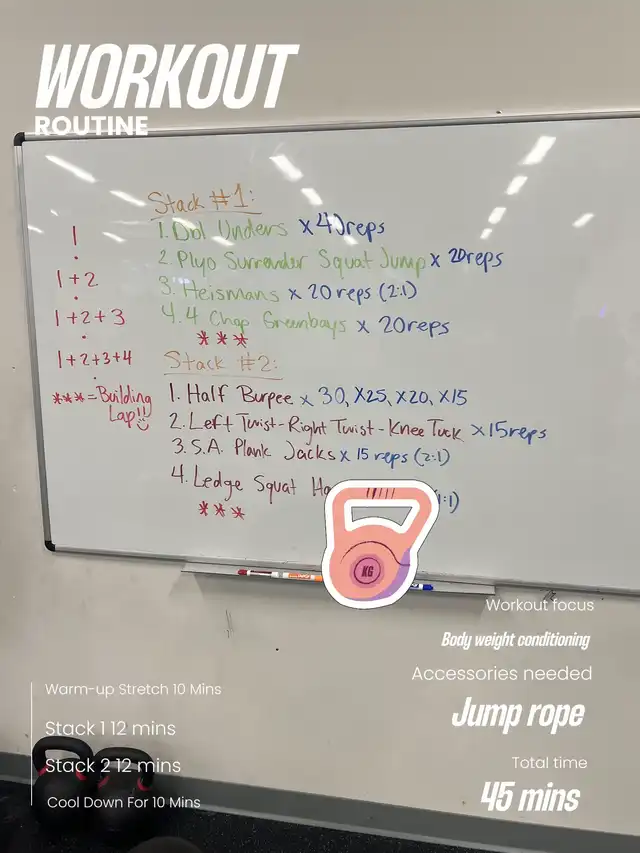 WORKOUT
ROUTINE
Stack #1:
1. Dbl Unders x 40reps
2. Plyo Surrender Squat Jump x 20reps
3. Heismans x 20 reps (2:1)
4. 4 Chop Greenbays x 20reps
***
1
1+2
1+2+3
1+2+3+4
***=Building
Lap!!
Stack #2:
1. Half Burpee x 30, X25, X20, X15
2. Left Twist-Right Twist-Knee Tuck x15reps
3. S.A. Plank Jacks x 15 reps (2:1)
4. Ledge Squat :1)
***
KG
Workout focus
Body weight conditioning
Accessories needed
Jump rope
Total time
45 mins
Warm-up Stretch 10 Mins
Stack 1 12 mins
Stack 2 12 mins
Cool Down For 10 Mins